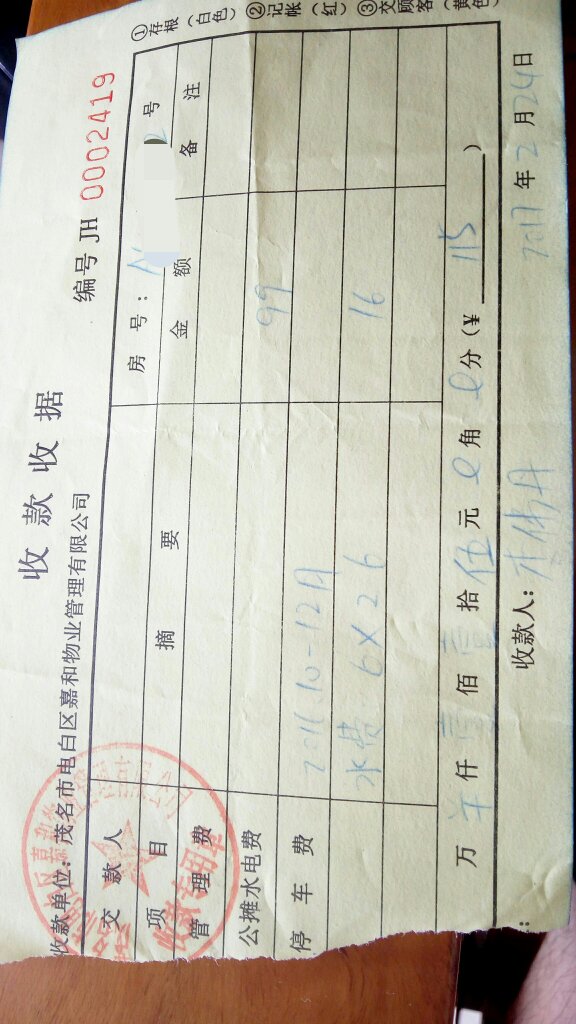 收款收据
编号 JH 0002419
收款单位：茂名市电白区嘉和物业管理有限公司
交款人 房号： 号
项目 摘要 金额 备注
管理费
公摊水电费 99
停车费 2016.10-12月
水费 6×2.6 16
万 仟 壹 佰 壹 拾 伍 元 0 角 0 分（¥ 115 ）
收款人： 2017 年 2 月 24 日
①存根（白色） ②记帐（红） ③交顾客（黄色